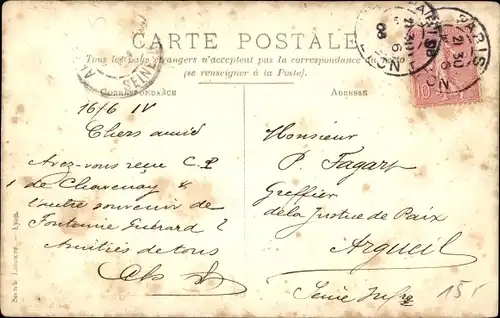 CARTE POSTALE
Tous les pays étrangers n'acceptent pas la correspondance au recto
(se renseigner à la Poste).
CORRESPONDANCE
ADRESSE
16/6 IV
Chers amis
Avez-vous reçu C.P
de Chavenay &
l'autre souvenir de
Fontaine
Amitiés de tous
Monsieur
P. Fagart
Greffier
de la Justice de Paix
Argueil
Seine Infre
15
PARIS
21 30
6
PARIS
21 30
6
08
SEINE
10
Lyon.